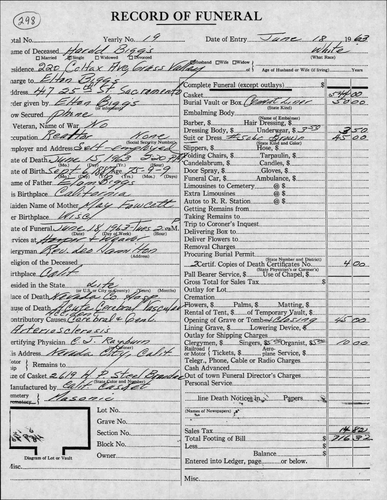 298
RECORD OF FUNERAL
otal No. Yearly No. 19 Date of Entry June 18 1963
me of Deceased Harold Biggs White
Married Single Widowed Divorced (What Race)
esidence 220 Colfax Ave, Grass Valley Husband Wife Widow Age of Husband or Wife (if living) Years
arge to Elton Biggs
ddress 417 25th St Sacramento
der given by Elton Biggs
ow Secured phone
Veteran, Name of War No
ccupation Realtor None
(Social Security Number)
mployer and Address Self employed
ate of Death June 15 1963 5:20 PM
ate of Birth Sept 6, 1887 75-9-9
ame of Father Tom Biggs
s Birthplace California
aiden Name of Mother May Fawcett
er Birthplace Wisc
ate of Funeral June 18, 1963 Tues 2 AM
rvices at
lergyman Rev. Leo Hamilton
eligion of the Deceased
irthplace Calif
esided in the State Life
(In U.S. or City or County)
lace of Death Nevada Co. Hosp
ause of Death Acute Cerebral Vascular
Accident
Contributory Causes Cerebral & Gen'l
Arteriosclerosis
ertifying Physician E.J. Rayburn
is Address Nevada City, Calif.
otor Remains to
ze of Casket 2619 H P Steel
(State Color and Number)
anufactured by Calif Casket
emetery Masonic
Lot No.
Grave No.
Section No.
Block No.
Owner
Diagram of Lot or Vault
Misc.
Complete Funeral (except outlays) $
Casket 544 00
Burial Vault or Box Cement Liner 50 00
Embalming Body
(Name of Embalmer)
Barber, $ Hair Dressing, $
Dressing Body, $ Underwear, $ 3.50 3 50
Suit or Dress Brown 45 00
(State Kind and Color)
Slippers, $ Hose, $
Folding Chairs, $ Tarpaulin, $
Candelabrum, $ Candles, $
Door Spray, $ Gloves, $
Funeral Car, $ Ambulance, $
Limousines to Cemetery @ $
Extra Limousines @ $
Autos to R. R. Station @ $
Getting Remains from
Taking Remains to
Trip to Coroner's Inquest
Delivering Box to
Deliver Flowers to
Removal Charges
Procuring Burial Permit
(State Number and District)
Certif. Copies of Death Certificates No. 4 00
(State Physician's or Coroner's)
Pall Bearer Service $ Use of Chapel, $
Gross Total for Sales Tax $
Outlay for Lot
Cremation
Flowers, $ Palms, $ Matting, $
Rental of Tent, $ of Temporary Vault, $
Opening of Grave or Tomb Closing 45 00
Lining Grave, $ Lowering Device, $
Outlay for Shipping Charges
Clergymen, $ Singers, $5.00 Organist, $5.00 10 00
Railroad or Motor Tickets, $ Aero- Service, $ plane
Telegr., Phone, Cable or Radio Charges
Cash Advanced
Out of town Funeral Director's Charges
Personal Service
line Death Notices in Papers $
(Names of Newspapers)
Sales Tax 14 82
Total Footing of Bill $ 716 32
Less
Balance $
Entered into Ledger, page or below.
Misc.